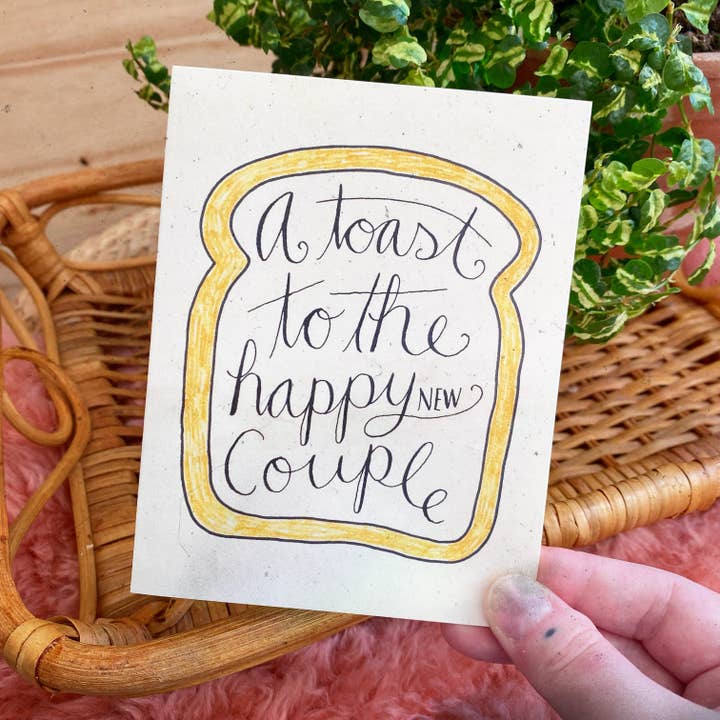 A toast
to the
happy NEW
Couple